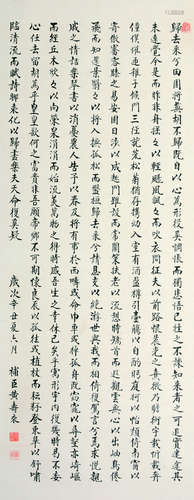 歸去來兮田園將蕪胡不歸既自以心為形役奚惆悵而獨悲悟已往之不諫知來者之可追實迷途其
未遠覺今是而昨非舟遙々以輕颺風飄々而吹衣問征夫以前路恨晨光之熹微乃瞻衡宇載欣載奔
僮僕歡迎稚子候門三徑就荒松菊猶存攜幼入室有酒盈樽引壺觴以自酌眄庭柯以怡顏倚南窗以
寄傲審容膝之易安園日涉以成趣門雖設而常關策扶老以流憩時矯首而遐觀雲無心以出岫鳥倦
飛而知還景翳々以將入撫孤松而盤桓歸去來兮請息交以絕遊世與我而相遺復駕言兮焉求悅親
戚之情話樂琴書以消憂農人告余以春及將有事於西疇或命巾車或棹孤舟既窈窕以尋壑亦崎嶇
而經丘木欣々以向榮泉涓涓而始流羨萬物之得時感吾生之行休已矣乎寓形宇內復幾時曷不委
心任去留胡為乎遑遑欲何之富貴非吾願帝鄉不可期懷良辰以孤往或植杖而耘耔登東皋以舒嘯
臨清流而賦詩聊乘化以歸盡樂夫天命復奚疑
歲次辛丑夏六月 補臣黃壽袞